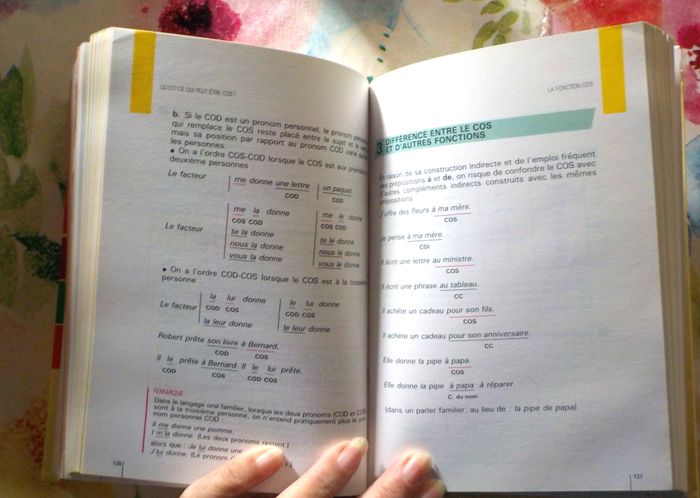 QU'EST-CE QUI PEUT ÊTRE COS?
b. Si le COD est un pronom personnel, le pronom
qui remplace le COS reste placé entre le sujet et le
mais sa position par rapport au pronom COD varie
les personnes.
• On a l'ordre COS-COD lorsque le COS est aux
deuxième personnes :
Le facteur
me donne une lettre
COD
un paquet.
COD
Le facteur
me la donne
COS COD
te la donne
nous la donne
vous la donne
me le donne
COS COD
te le donne
nous le donne
vous le donne
• On a l'ordre COD-COS lorsque le COS est à la
personne :
Le facteur
la lui donne
COD COS
la leur donne
le lui donne
COD COS
le leur donne
Robert prête son livre à Bernard.
COD COS
Il le prête à Bernard. Il le lui prête.
COD COS COD COS
REMARQUE
Dans le langage oral familier, lorsque les deux pronoms (COD et COS)
sont à la troisième personne, on n'entend pratiquement plus le
nom personnel COD
Il me donne une pomme.
I m'la donne. (Les deux pronoms restent.)
alors que : Je lui donne une
J'lui donne. (Le pronom
126
LA FONCTION COS
3 DIFFÉRENCE ENTRE LE COS
ET D'AUTRES FONCTIONS
En raison de sa construction indirecte et de l'emploi fréquent
des prépositions à et de, on risque de confondre le COS avec
d'autres compléments indirects construits avec les mêmes
prépositions.
J'offre des fleurs à ma mère.
COS
Je pense à ma mère.
COI
Il écrit une lettre au ministre.
COS
Il écrit une phrase au tableau.
CC
Il achète un cadeau pour son fils.
COS
Il achète un cadeau pour son anniversaire.
CC
Elle donne la pipe à papa.
COS
Elle donne la pipe à papa à réparer.
C. du nom
(dans un parler familier, au lieu de : la pipe de papa).
127